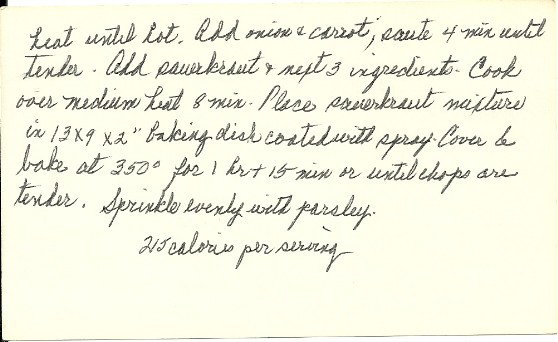 heat until hot. Add onion & carrot; saute 4 min until
tender. Add sauerkraut & next 3 ingredients. Cook
over medium heat 8 min. Place sauerkraut mixture
in 13 x 9 x 2" baking dish coated with spray. Cover &
bake at 350° for 1 hr + 15 min or until chops are
tender. Sprinkle evenly with parsley.
215 calories per serving